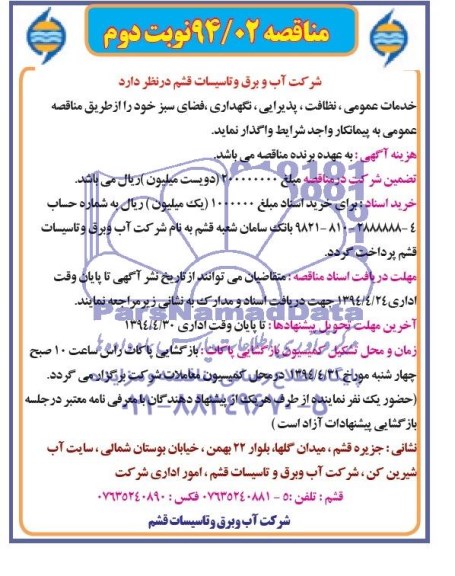 مناقصه ۹۴/۰۲نوبت دوم
شرکت آب و برق وتاسیسات قشم درنظر دارد
خدمات عمومی ، نظافت ، پذیرایی ، نگهداری ،فضای سبز خود را ازطریق مناقصه
عمومی به پیمانکار واجد شرایط واگذار نماید.
هزینه آگهی : به عهده برنده مناقصه می باشد.
تضمین شرکت درمناقصه مبلغ ۲۰۰۰۰۰۰۰۰ (دویست میلیون )ریال می باشد.
خرید اسناد : برای خرید اسناد مبلغ ۱۰۰۰۰۰۰ (یک میلیون ) ریال به شماره حساب
۴ -۲۸۸۸۸۸۸ -۸۱۰ -۹۸۲۱ بانک سامان شعبه قشم به نام شرکت آب وبرق و تاسیسات
قشم پرداخت گردد.
مهلت دریافت اسناد مناقصه : متقاضیان می توانند ازتاریخ نشر آگهی تا پایان وقت
اداری ۱۳۹۴/۴/۲۴ جهت دریافت اسناد و مدارک به نشانی زیرمراجعه نمایند.
آخرین مهلت تحویل پیشنهادها : تا پایان وقت اداری ۱۳۹۴/۴/۳۰
زمان و محل تشکیل کمیسیون بازگشایی پاکات : بازگشایی پاکات راس ساعت ۱۰ صبح
چهار شنبه مورخ ۱۳۹۴/۴/۳۱ درمحل کمیسیون معاملات شرکت برگزار می گردد.
(حضور یک نفر نماینده از طرف هریک از پیشنهاد دهندگان با معرفی نامه معتبر درجلسه
بازگشایی پیشنهادات آزاد است )
نشانی : جزیره قشم ، میدان گلها، بلوار ۲۲ بهمن ، خیابان بوستان شمالی ، سایت آب
شیرین کن ، شرکت آب وبرق و تاسیسات قشم ، امور اداری شرکت
قشم : تلفن :۵ - ۰۷۶۳۵۲۴۰۸۸۱ فکس : ۰۷۶۳۵۲۴۰۸۹۰
شرکت آب وبرق وتاسیسات قشم
ParsNamadData
۰۲۱-۸۸۳۴۹۶۷۰-۵